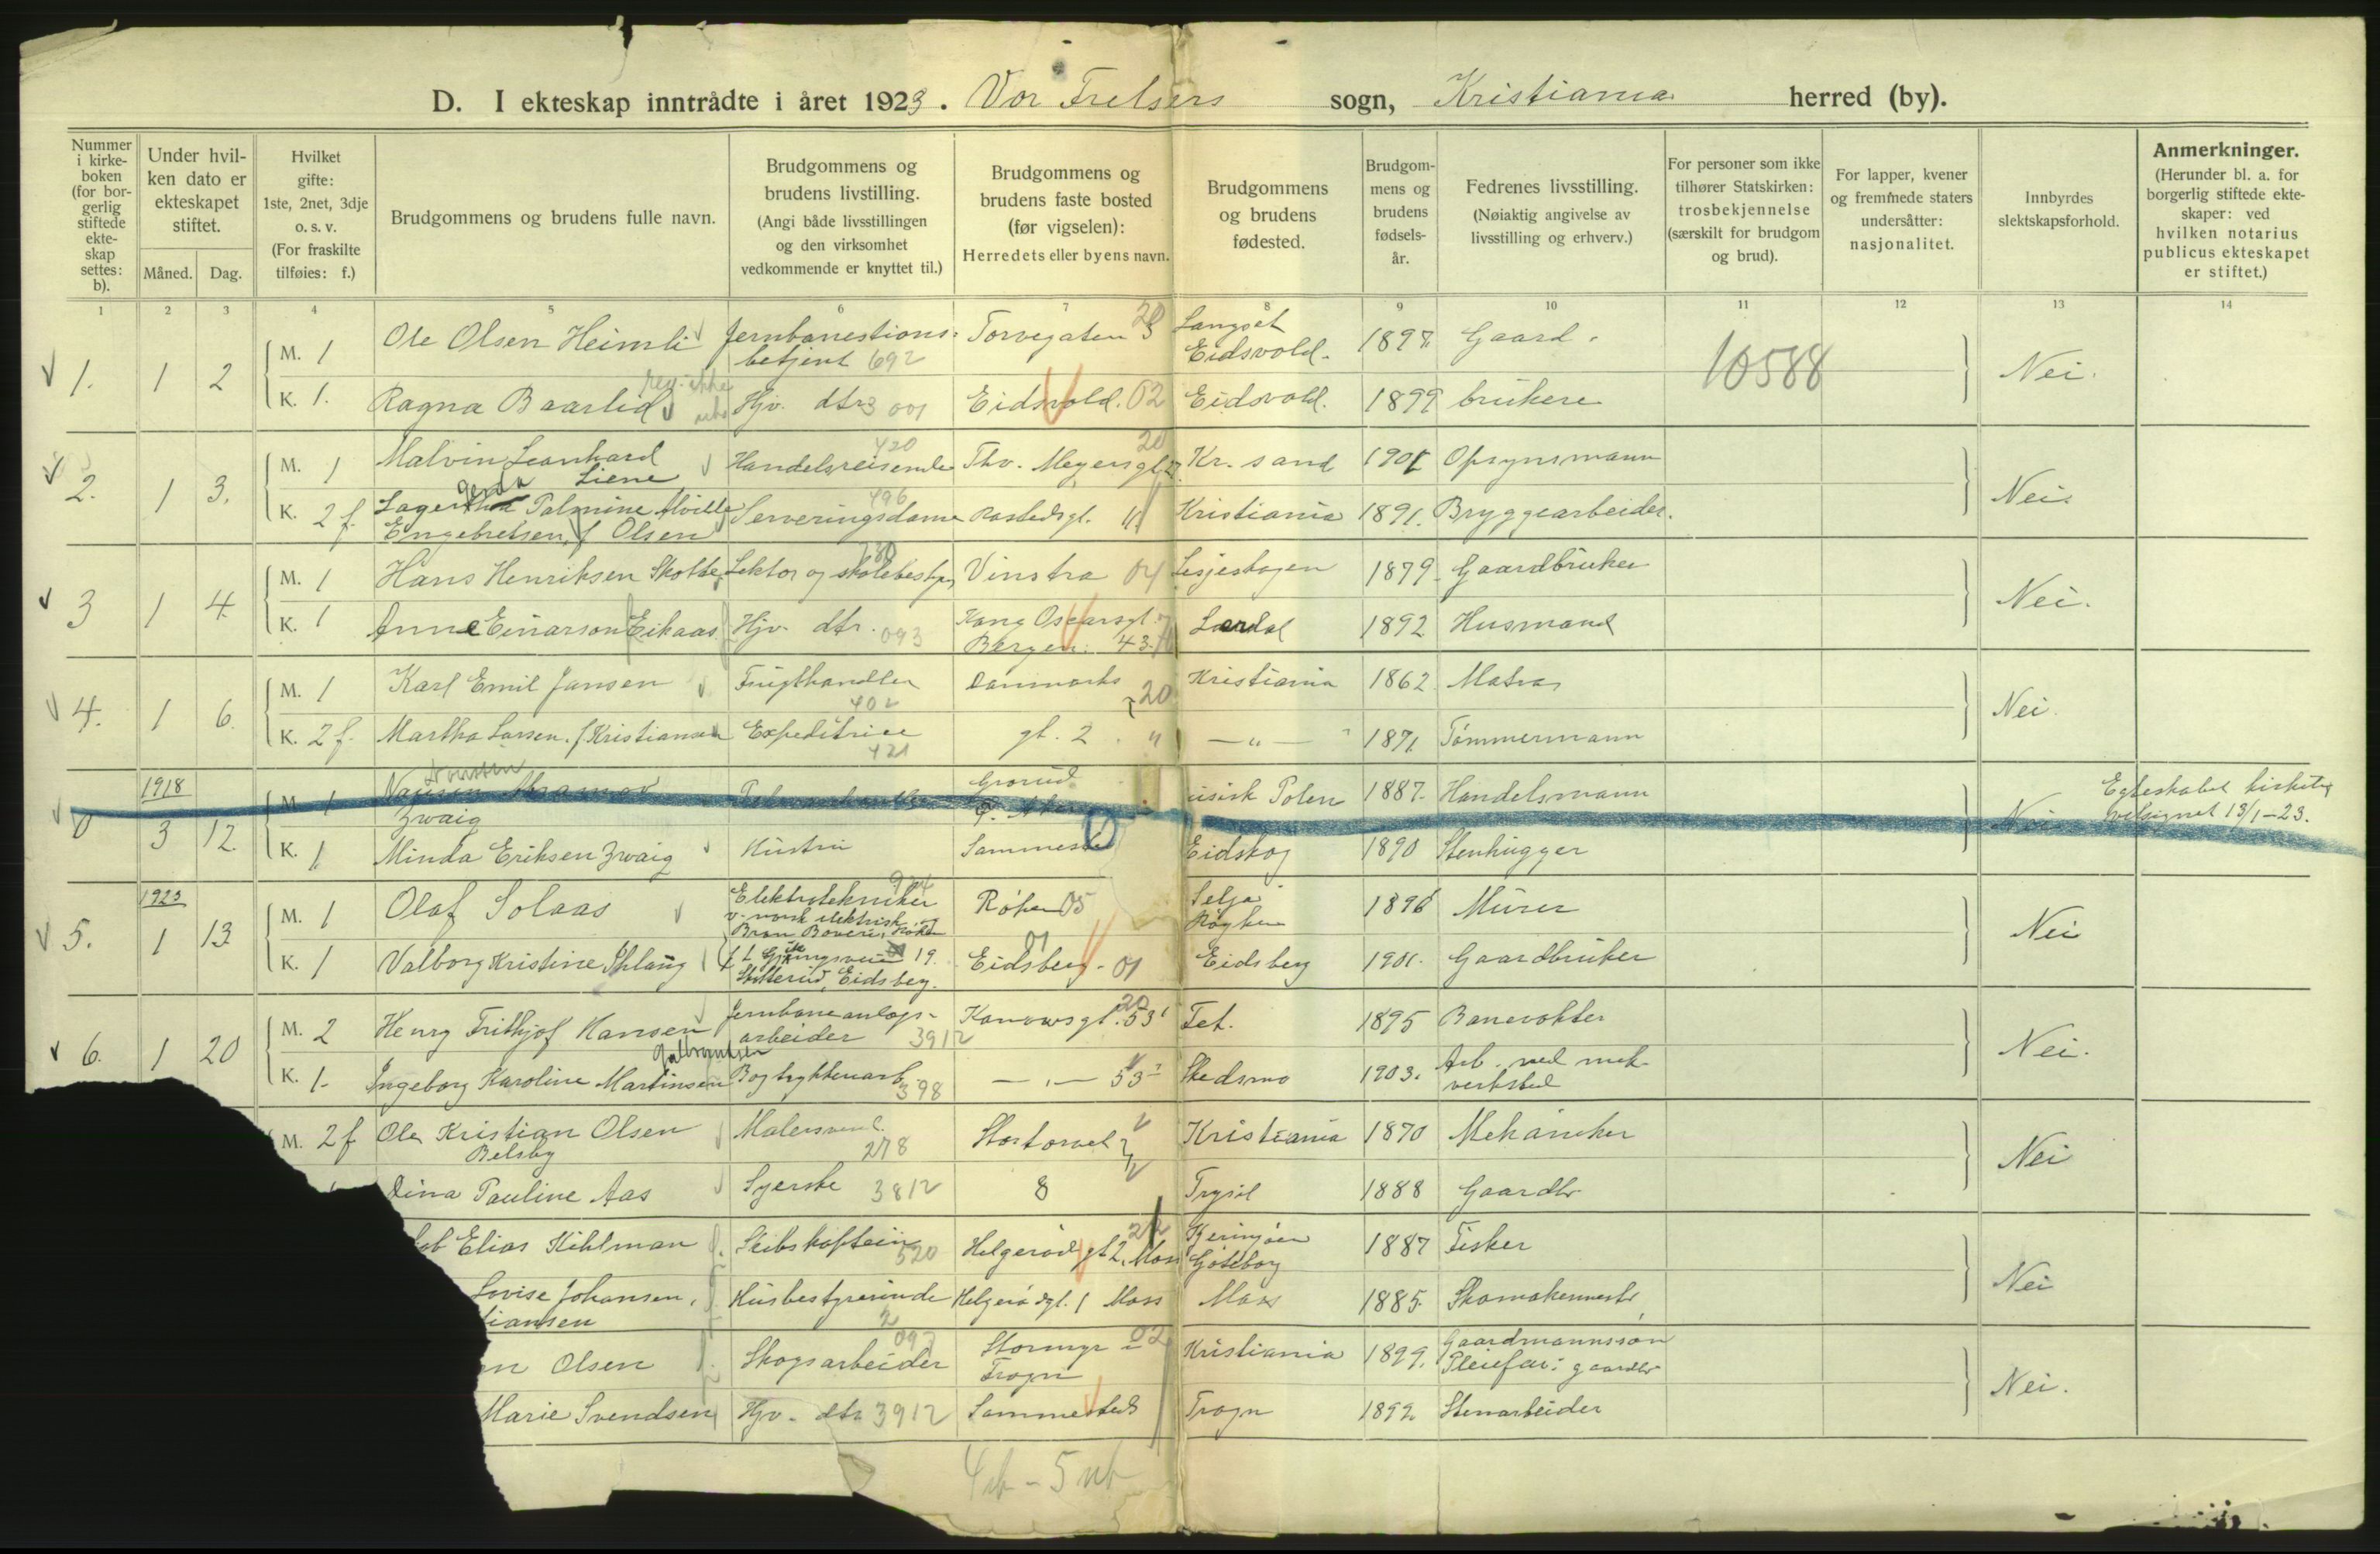 D. I ekteskap inntrådte i året 1923. Vor Frelsers sogn, Kristiania herred (by).
Nummer i kirkeboken (for borgerlig stiftede ekteskap settes: b).
Under hvilken dato er ekteskapet stiftet.
Måned. Dag.
Hvilket gifte: 1ste, 2net, 3dje o. s. v. (For fraskilte tilføies: f.)
Brudgommens og brudens fulle navn.
Brudgommens og brudens livstilling. (Angi både livsstillingen og den virksomhet vedkommende er knyttet til.)
Brudgommens og brudens faste bosted (før vigselen): Herredets eller byens navn.
Brudgommens og brudens fødested.
Brudgommens og brudens fødselsår.
Fedrenes livsstilling. (Nøiaktig angivelse av livsstilling og erhverv.)
For personer som ikke tilhører Statskirken: trosbekjennelse (særskilt for brudgom og brud).
For lapper, kvener og fremmede staters undersåtter: nasjonalitet.
Innbyrdes slektskapsforhold.
Anmerkninger. (Herunder bl. a. for borgerlig stiftede ekteskaper: ved hvilken notarius publicus ekteskapet er stiftet.)
1 2 3 4 5 6 7 8 9 10 11 12 13 14
1. 1 2 M. 1 Ole Olsen Heimli Jernbanestions- betjent 692 Torvegaten 5 20 Langset Eidsvold. 1897. Gaard- 10588 Nei.
K. 1. Ragna Baarlid Hjv. dtr 3 001 Eidsvold. 02 Eidsvold. 1899 brukere
2. 1 3. M. 1 Malvin Leonhard Liene Handelsreisende 420 Thv. Meyersgt 20 Kr. sand 1901 Opsynsmann Nei.
K. 2 f. Lagertha gerda Palmine Alvilde Engebretsen, f Olsen Serveringsdame 496 Rostedsgt. 11 Kristiania 1891. Bryggearbeider.
3 1 4. M. 1 Hans Henriksen Skotte Lektor og skolebestyr. Vinstra 04 Lesjeskogen 1879. Gaardbruker Nei.
K. 1 Anne Einarson Eikaas Hjv. dtr. 093 Kong Oscarsgt. Bergen. 43 Lærdal 1892 Husmand
4. 1 6. M. 1 Karl Emil Jansen Frugthandler 402 Danmarks 20 Kristiania 1862 Matros Nei.
K. 2 f. Martha Larsen. f. Kristiansen Expeditrice 421 gt. 2. " — " — 1871. Tømmermann
1918
0 3 12. M. 1 Zwaig Grorud Ø. Aker Polen 1887. Handelsmann Nei Egteskabet kirkelig velsignet 13/1-23.
K. 1 Minda Eriksen Zwaig Hustru Sammested Eidskog 1890 Stenhugger
1923
5. 1 13 M. 1 Olaf Solaas Elektrotekniker v. norsk elektrisk og Brown Boveri, Røken 05 Selja Røyken 1896 Murer Nei
K. 1 Valborg Kristine 19. Eidsberg. Eidsberg - 01 Eidsberg 1901. Gaardbruker
6. 1 20 M. 2 Henry Frithjof Hansen Jernbaneanlegs- arbeider 3912 Kanowsgt. 53 20 Fet. 1895 Banevokter Nei.
K. 1. Ingeborg Karoline Martinsen Bogtrykkerarb. 398 — " — 53 Skedsmo 1903. Arb. ved mek. verksted
M. 2 f Ole Kristian Olsen Belsby Malersvend. 278 Stortorvet Kristiania 1870 Mekaniker Nei
Dina Pauline Aas Syerske 3812 8 Trysil 1888 Gaardbr
Elias Kihlman Skibskaptein 520 Helgerødgt 2, Moss Göteborg 1887 Fisker Nei
Lovise Johansen, tiansen Husbestyrerinde Helgerødgt. 1 Moss Moss 1885. Skomakermester
Olsen Skogsarbeider 097 Stormyr 02 Frogn Kristiania 1899. Gaardmannssøn Pleiefar: gaardbr Nei.
Marie Svendsen Hjv. dtr 3912 Sammesteds Frogn 1892 Stenarbeider